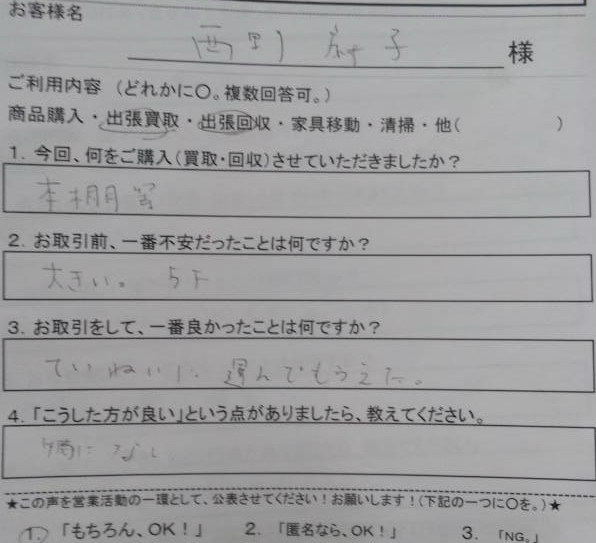 お客様名
西 子 様
ご利用内容 (どれかに〇。複数回答可。)
商品購入・出張買取・出張回収・家具移動・清掃・他( )
1. 今回、何をご購入(買取・回収)させていただきましたか?
本棚等
2. お取引前、一番不安だったことは何ですか?
大きい。 5F
3. お取引をして、一番良かったことは何ですか?
ていねいに 運んでもらえた。
4. 「こうした方が良い」という点がありましたら、教えてください。
特に なし
★この声を営業活動の一環として、公表させてください!お願いします!(下記の一つに〇を。)★
1. 「もちろん、OK!」 2. 「匿名なら、OK!」 3. 「NG。」